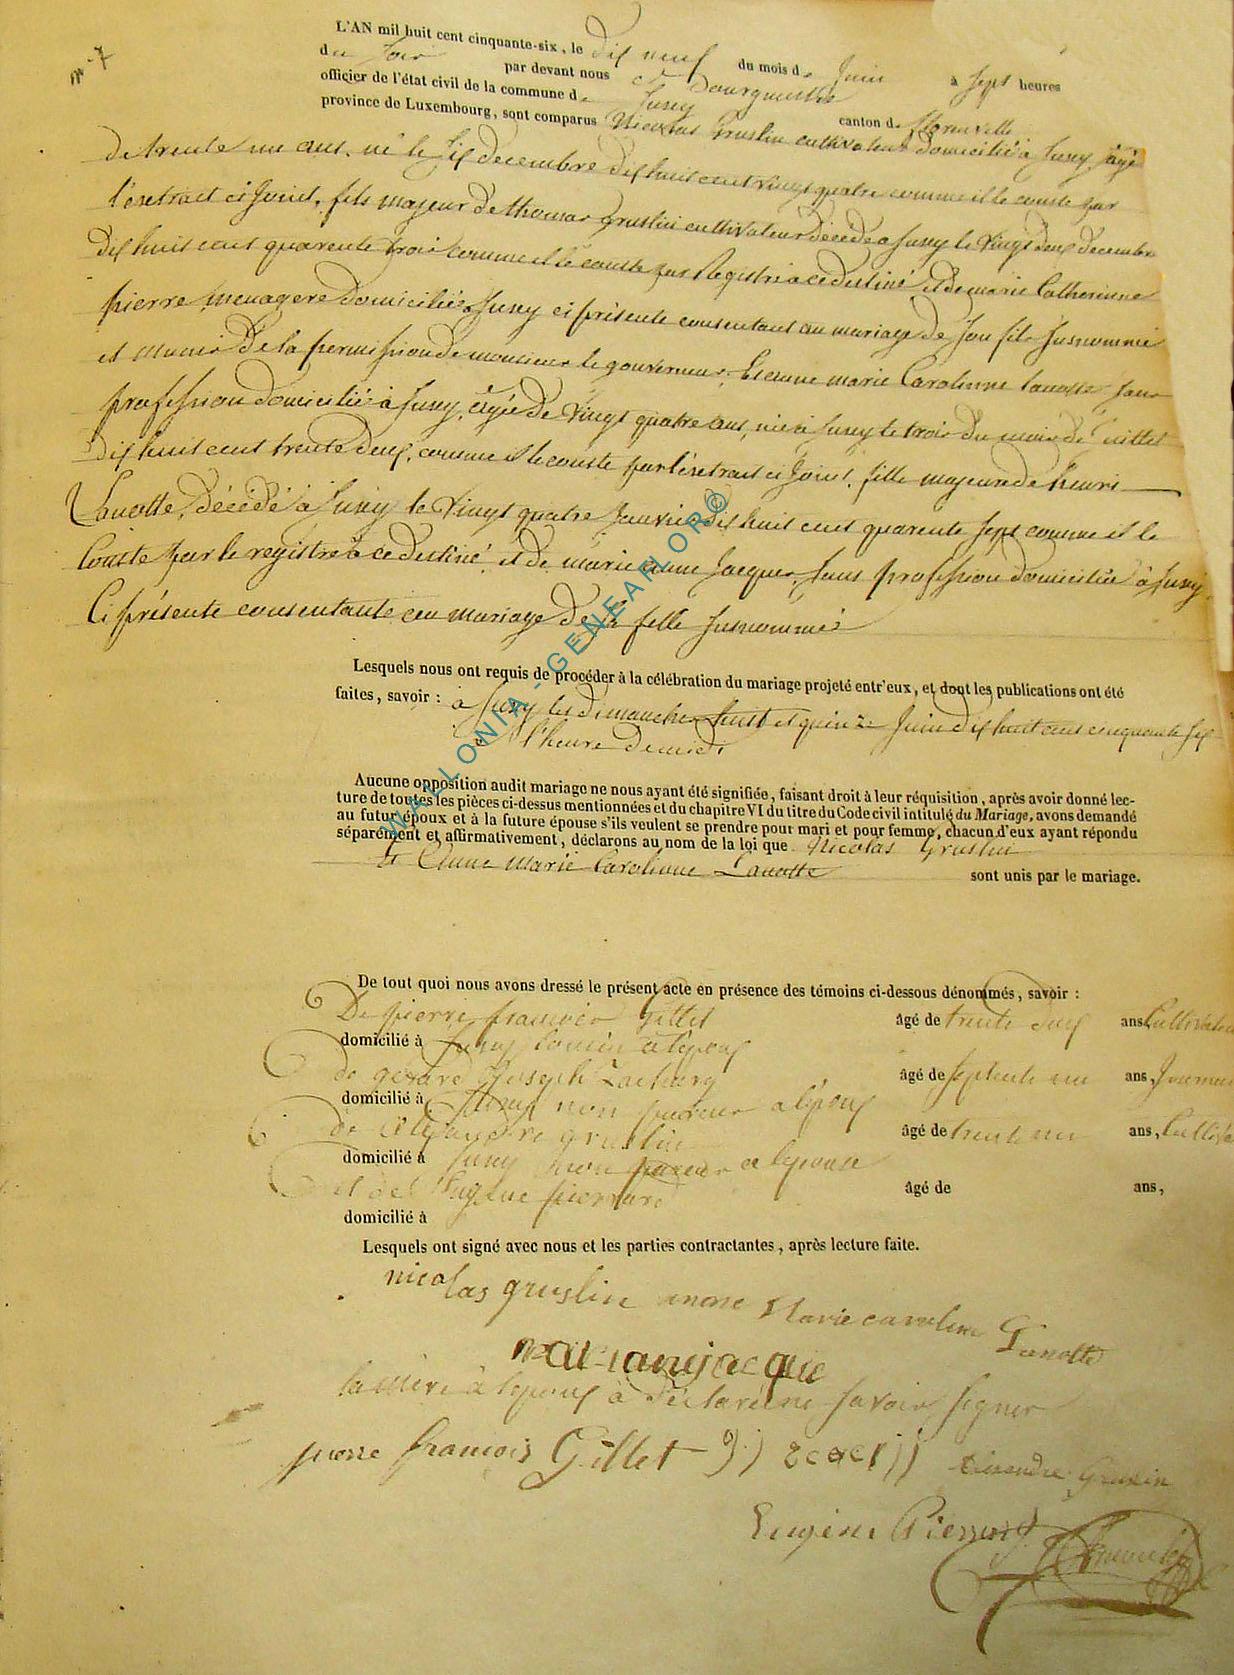 n° 7
L'AN mil huit cent cinquante-six, le dix neuf du mois de Juin à sept heures
du soir par devant nous
officier de l'état civil de la commune de Suxy canton de Florenville
province de Luxembourg, sont comparus Nicolas Gruslin cultivateur domicilié à Suxy, âgé
de trente un ans, né le six decembre dix huit cent vingt quatre comme il le conste par
l'extrait ci joint, fils majeur de thomas Gruslin cultivateur décédé à Suxy le vingt deux decembre
dix huit cent quarente trois comme il le conste par Registre a ce destiné et de marie Catherinne
pierre menagere domiciliée à Suxy ci présente consentant au mariage de son fils susnommé
et munie de la permission de monsieur le gouverneur, Et anne marie Carolinne Lanotte sans
profession domicilié à Suxy, agée de vingt quatre ans, née à Suxy le trois du mois de Juillet
dix huit cent trente deux, comme il le conste par l'extrait ci joint, fille majeure de henri
Lanotte, décédé à Suxy le vingt quatre Janvier dix huit cent quarente sept comme il le
Conste par le registre a ce destiné, et de marie anne Jacques, sans profession domiciliée à Suxy,
Ci présente consentante au mariage de sa fille susnommée
Lesquels nous ont requis de procéder à la célébration du mariage projeté entr'eux, et dont les publications ont été
faites, savoir : à Suxy les dimanches huit et quinze Juin dix huit cent cinquante six
à l'heure de midi
Aucune opposition audit mariage ne nous ayant été signifiée, faisant droit à leur réquisition, après avoir donné lec-
ture de toutes les pièces ci-dessus mentionnées et du chapitre VI du titre du Code civil intitulé du Mariage, avons demandé
au futur époux et à la future épouse s'ils veulent se prendre pour mari et pour femme, chacun d'eux ayant répondu
séparément et affirmativement, déclarons au nom de la loi que Nicolas Gruslin
et Anne Marie Carolinne Lanotte sont unis par le mariage.
De tout quoi nous avons dressé le présent acte en présence des témoins ci-dessous dénommés, savoir :
De pierre francois Gillet âgé de trente deux ans Cultivateur
domicilié à Suxy cousin a l'epoux
de gerard Joseph Zachary âgé de septente un ans, Journa
domicilié à Suxy non pareur a l'époux
de Alexandre gruslin âgé de trente un ans, Cultiva
domicilié à Suxy non pareur a l'epouse
et de Eugene pierrard âgé de ans,
domicilié à
Lesquels ont signé avec nous et les parties contractantes, après lecture faite.
nicolas gruslin anne Marie caroline Lanotte
jacque
la mère à l'epoux à déclarée ne savoir signer
pierre françois Gillet
Eugène Pierrard
WALLONIA-GENEAFLOR©